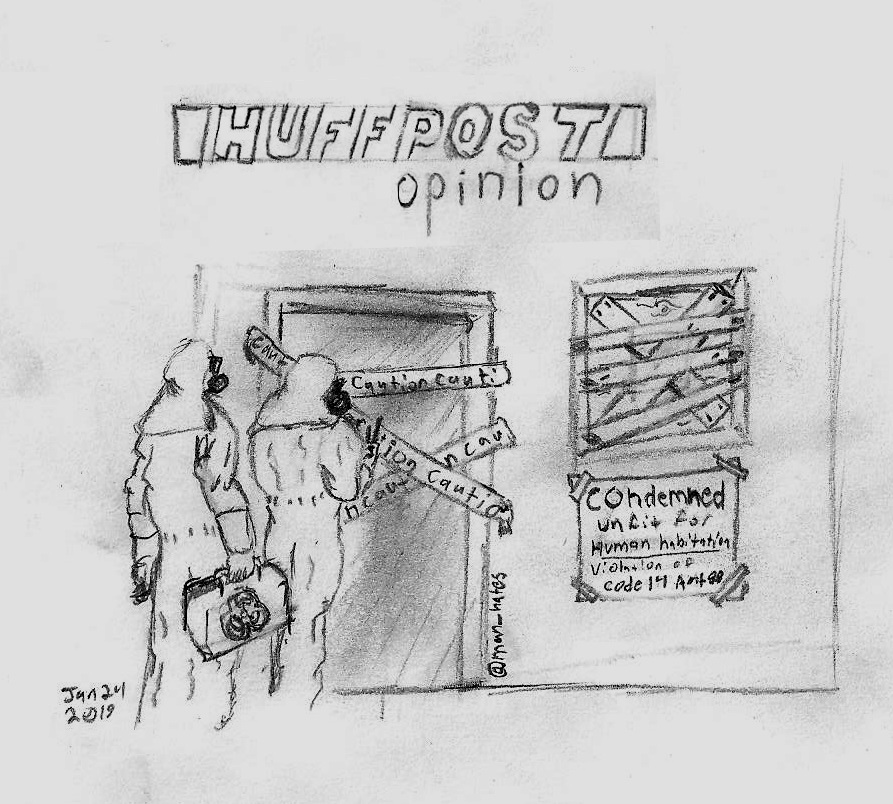 HUFFPOST
opinion
cau
Caution Cauti
ution Cautio
n cau
n cau
Condemned
unfit for
Human habitation
Violation of
code 14
@man_hates
Jan 24
2019